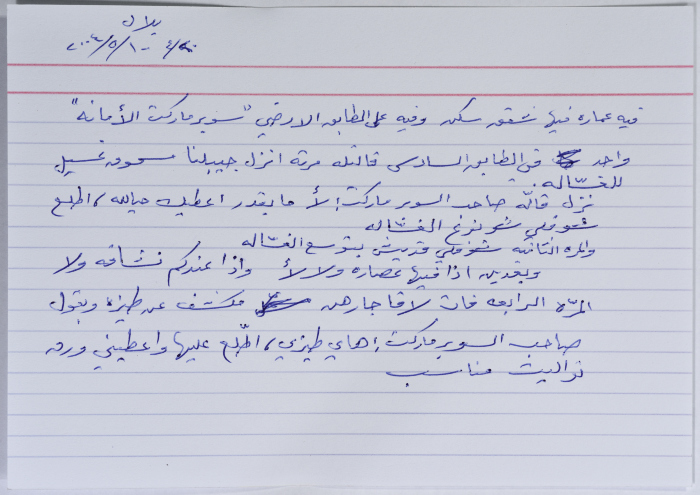 بلال
٢٠٠٤/٥/١٠
فيه عماره فيها شقق سكن وفيه على الطابق الارضي "سوبر ماركت الأمانه"
واحد في الطابق السادس قالتله مرته انزل جيبلنا مسحوق غسيل
للغسّاله.
نزل قالّه صاحب السوبر ماركت: لأ ما بقدر اعطيك هيالله، اطلع
شوفلي شو نوع الغسّاله
والمره الثانيه شوفلي قديش بتوسع الغسّاله
وبعدين اذا فيها عصاره ولا لأ واذا عندكم نشّافه ولا
المرّه الرابعه فات لاقا جارهن مكشف عن طيزه وبقول
صاحب السوبر ماركت: هاي طيزي، اطّلع عليها واعطيني ورق
تواليت مناسب